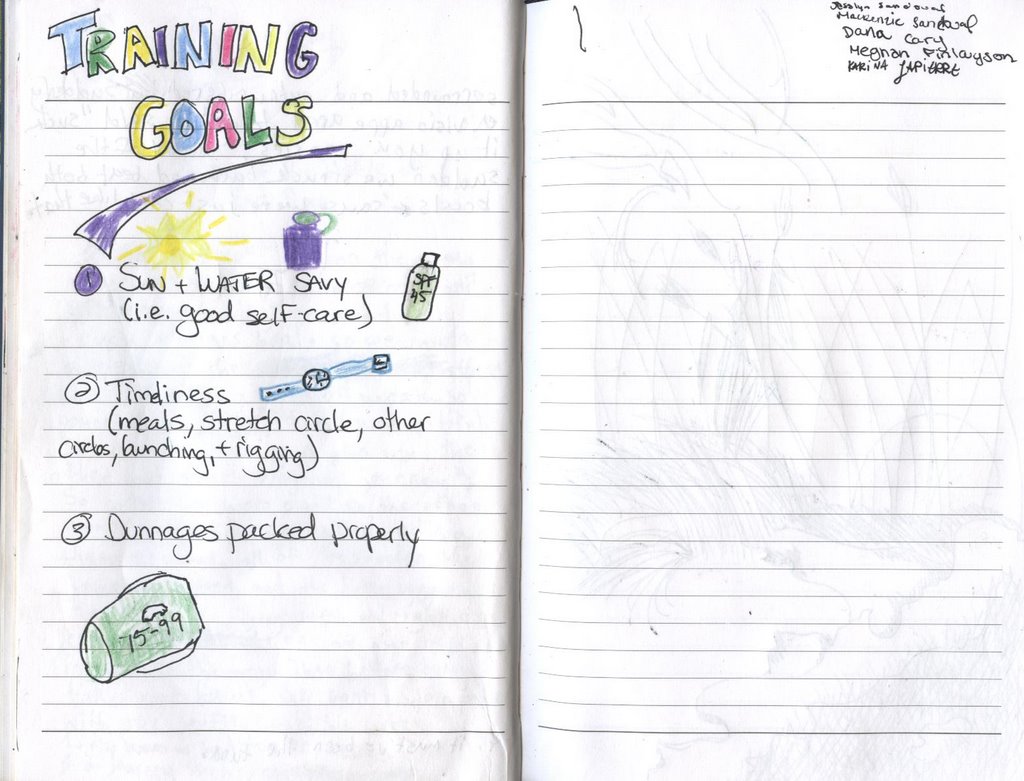 TRAINING
GOALS
① SUN + WATER SAVY
(i.e. good self-care)
SPF
45
② Timeliness
(meals, stretch circle, other
circles, bunching, + rigging)
③ Dunnages packed properly
75-99
Mackenzie Sandoval
Dana Cary
Meghan Finlayson
KARINA